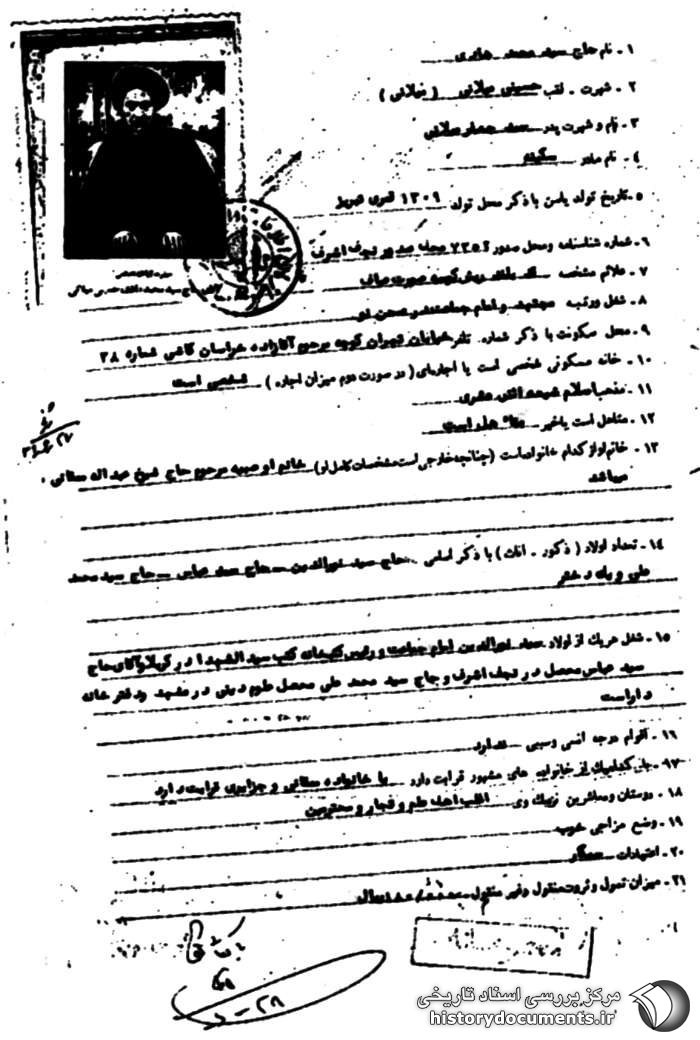 ۱ - نام حاج سید محمد هادی
۲ - شهرت - لقب حسینی میلانی ( میلانی )
۳ - نام و شهرت پدر سید جعفر میلانی
۴ - نام مادر سکینه
۵ - تاریخ تولد یاسن با ذکر محل تولد ۱۳۰۹ قمری تبریز
۶ - شماره شناسنامه ومحل صدور ۷۳۵۶ محله صدور نجف اشرف
۷ - علائم مشخصه قد بلند ریش کوسه صورت صاف
۸ - شغل ورتبه مجتهد و امام جماعت در صحن نو
۹ - محل سکونت با ذکر شماره تلفن خیابان تهران کوچه مرحوم آقازاده خراسان کاشی شماره ۳۸
۱۰ - خانه مسکونی شخصی است یا اجاره‌ای ( در صورت دوم میزان اجاره ) شخصی است
۱۱ - مذهب اسلام شیعه اثنی عشری
۱۲ - متاهل است یاخیر متاهل است
۱۳ - خانم او از کدام خانواده است (چنانچه خارجی است مشخصات کامل او) خانم او صبیه مرحوم حاج شیخ عبداله ممقانی
میباشد
۱۴ - تعداد اولاد ( ذکور - اناث ) با ذکر اسامی حاج سید نورالدین - حاج سید عباس - حاج سید محمد
علی و یک دختر
۱۵ - شغل هریک از اولاد سید نورالدین امام جماعت و رئیس کتابخانه کتب سید الشهدا در کربلا و آقای حاج
سید عباس محصل در نجف اشرف و حاج سید محمد علی محصل علوم دینی در مشهد ودفترخانه
داراست
۱۶ - اقوام درجه نسبی وسببی ندارد
۱۷ - با کدامیک از خانواده های مشهور قرابت دارد با خانواده ممقانی و جزایری قرابت دارد
۱۸ - دوستان ومعاشرین نزدیک وی اغلب اهل علم و تجار و محترمین
۱۹ - وضع مزاجی خوب
۲۰ - اعتیادات سیگار
۲۱ - میزان تمول و ثروت منقول وغیر منقول
مرکز بررسی اسناد تاریخی
historydocuments.ir